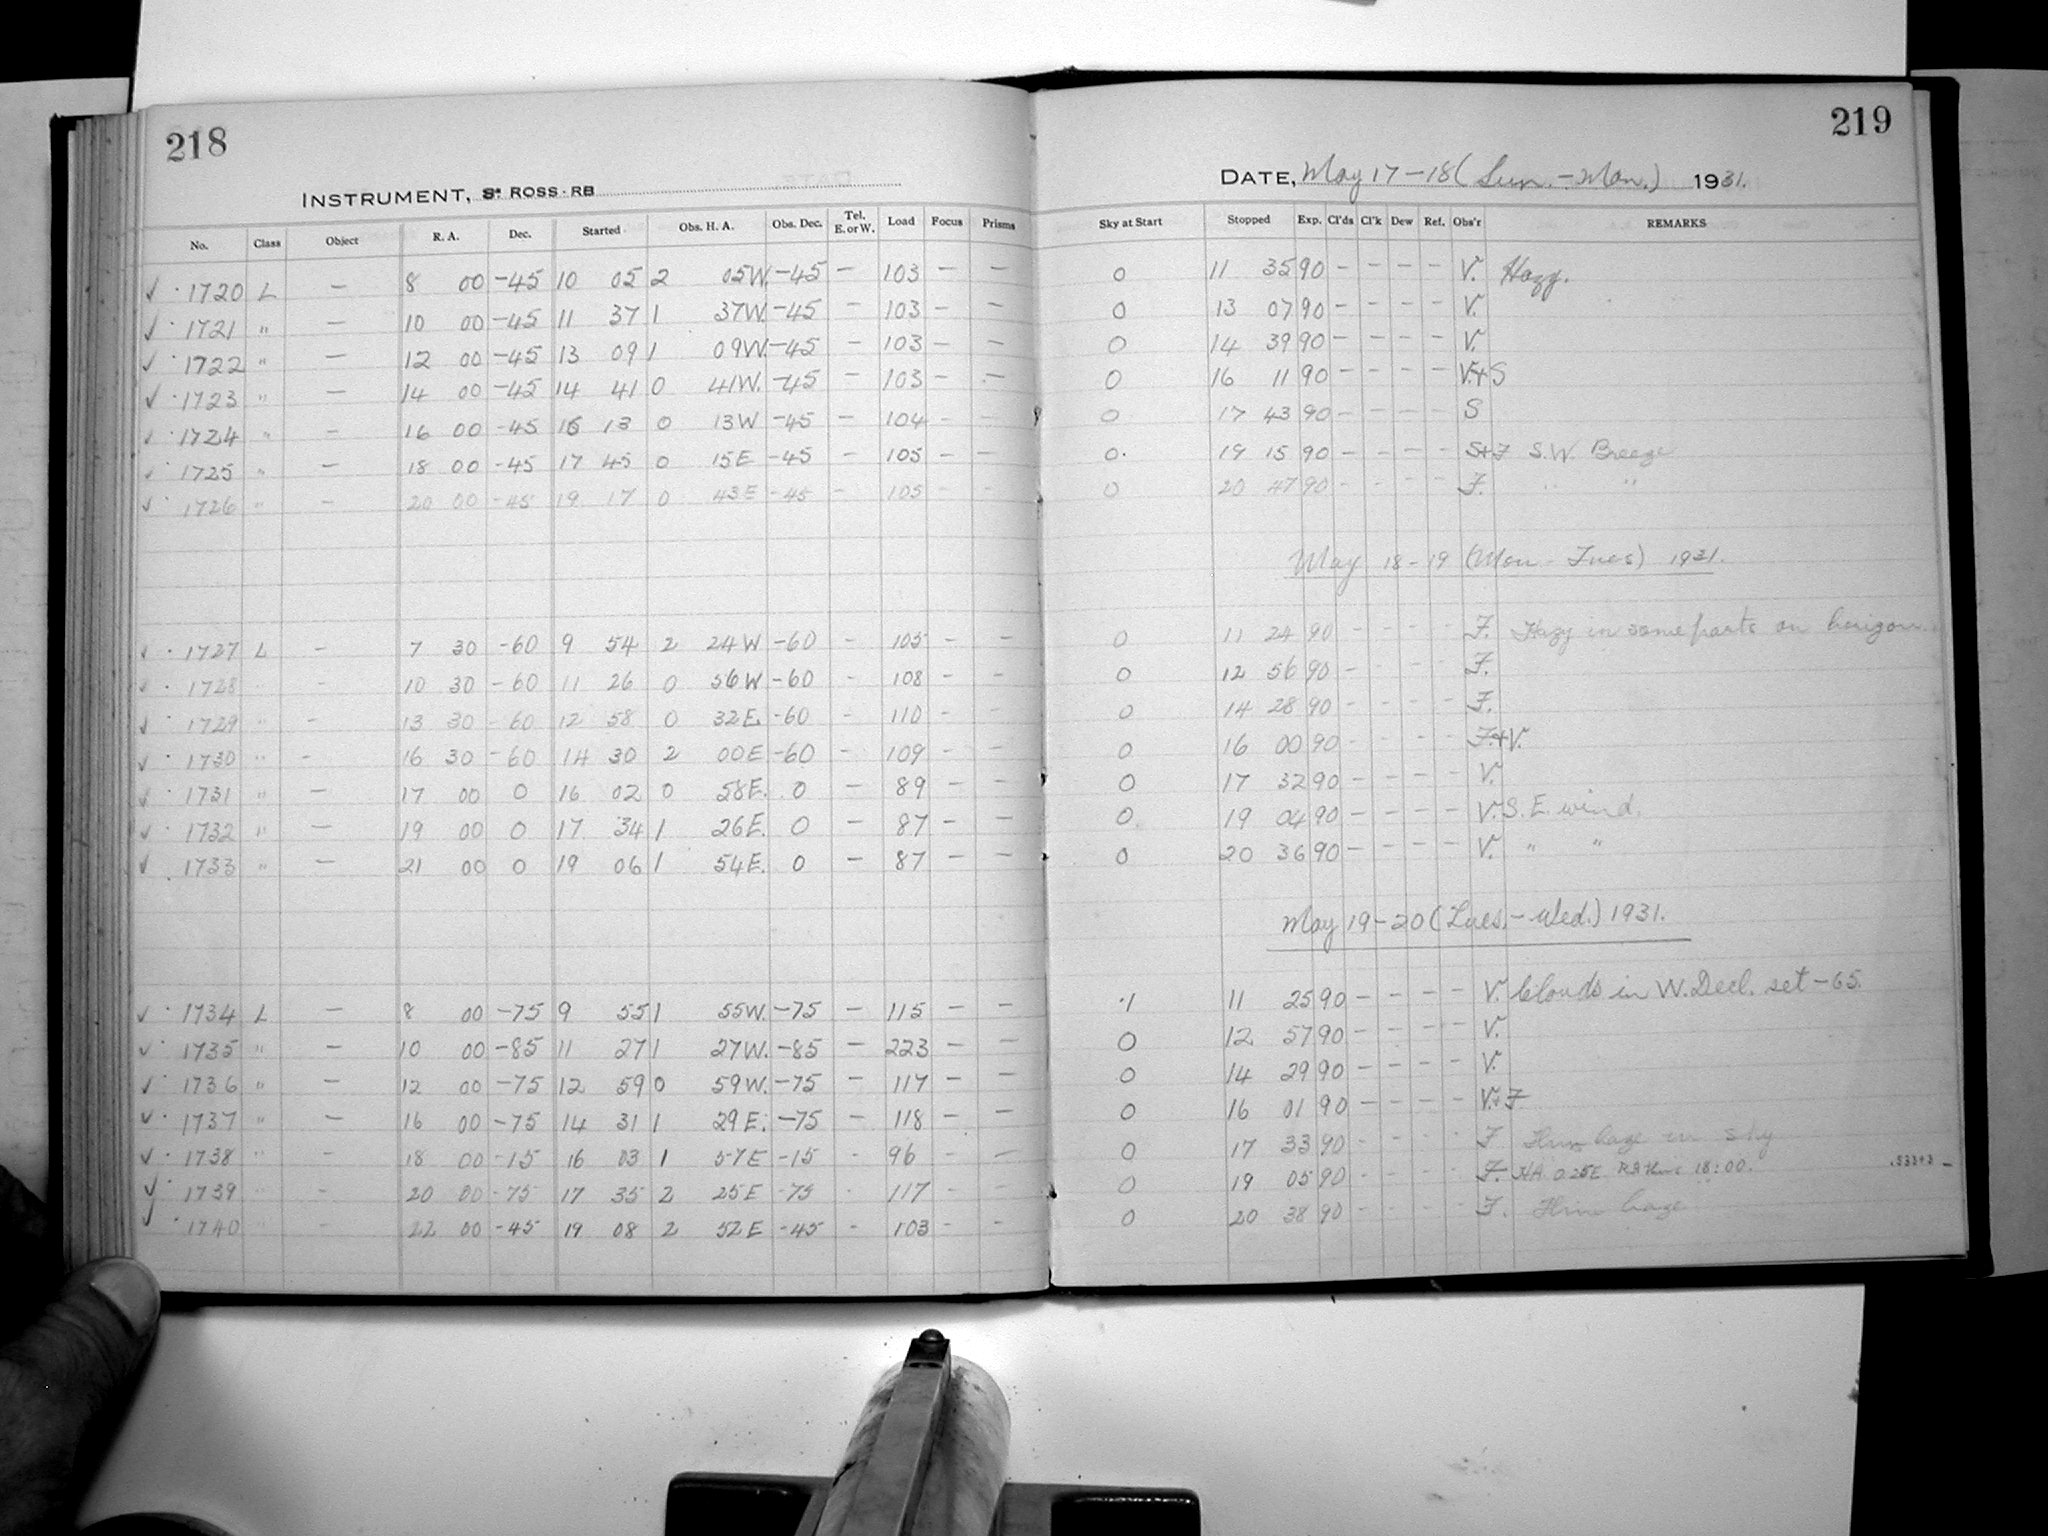 218
INSTRUMENT, ROSS-RB
No. Class Object R. A. Dec. Started Obs. H. A. Obs. Dec. Tel. E. or W. Load Focus Prisms
✓ 1720 L — 8 00 -45 10 05 2 05W. -45 — 103 — —
✓ 1721 " — 10 00 -45 11 37 1 37W. -45 — 103 — —
✓ 1722 " — 12 00 -45 13 09 1 09W. -45 — 103 — —
✓ 1723 " — 14 00 -45 14 41 0 41W. -45 — 103 — —
✓ 1724 " — 16 00 -45 16 13 0 13W -45 — 104 — —
✓ 1725 " — 18 00 -45 17 45 0 15E -45 — 105 — —
✓ 1726 " — 20 00 -45 19 17 0 43E -45 — 105 — —
✓ 1727 L — 7 30 -60 9 54 2 24W -60 — 105 — —
✓ 1728 " — 10 30 -60 11 26 0 56W -60 — 108 — —
✓ 1729 " — 13 30 -60 12 58 0 32E. -60 — 110 — —
✓ 1730 " — 16 30 -60 14 30 2 00E -60 — 109 — —
✓ 1731 " — 17 00 0 16 02 0 58E. 0 — 89 — —
✓ 1732 " — 19 00 0 17 34 1 26E. 0 — 87 — —
✓ 1733 " — 21 00 0 19 06 1 54E. 0 — 87 — —
✓ 1734 L — 8 00 -75 9 55 1 55W. -75 — 115 — —
✓ 1735 " — 10 00 -85 11 27 1 27W. -85 — 223 — —
✓ 1736 " — 12 00 -75 12 59 0 59W. -75 — 117 — —
✓ 1737 " — 16 00 -75 14 31 1 29E. -75 — 118 — —
✓ 1738 " — 18 00 -15 16 03 1 57E -15 - 96 — —
✓ 1739 " — 20 00 -75 17 35 2 25E -75 - 117 — —
✓ 1740 " — 22 00 -45 19 08 2 52E -45 - 103 — —
219
DATE, May 17-18 (Sun.-Mon.) 1931.
Sky at Start Stopped Exp. Cl'ds Cl'k Dew Ref. Obs'r REMARKS
0 11 35 90 — — — — V. Hazy.
0 13 07 90 — — — — V.
0 14 39 90 — — — — V.
0 16 11 90 — — — — V.+S
0 17 43 90 — — — — S
0 19 15 90 — — — — S+F S.W. Breeze
0 20 47 90 — — — — F. " "
May 18-19 (Mon-Tues) 1931.
0 11 24 90 — — — — F. Hazy in some parts on horizon.
0 12 56 90 — — — — F.
0 14 28 90 — — — — F.
0 16 00 90 — — — — F.+V.
0 17 32 90 — — — — V.
0 19 04 90 — — — — V. S.E. wind.
0 20 36 90 — — — — V. " "
May 19-20 (Tues.-Wed.) 1931.
.1 11 25 90 — — — — V. Clouds in W. Decl. set -65.
0 12 57 90 — — — — V.
0 14 29 90 — — — — V.
0 16 01 90 — — — — V.+F
0 17 33 90 — — — — F haze in sky
0 19 05 90 — — — — F. HA. 0.25E. 18:00.
0 20 38 90 — — — — F. haze